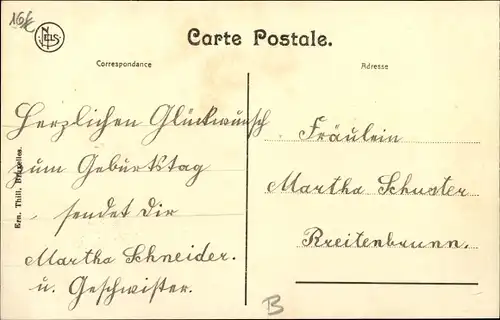 16/K
NELS
Carte Postale.
Correspondance
Adresse
Herzlichen Glückwunsch
zum Geburtstag
sendet Dir
Martha Schneider.
u. Geschwister.
Fräulein
Martha Schuster
Breitenbrunn.
Ern. Thill, Bruxelles.
B